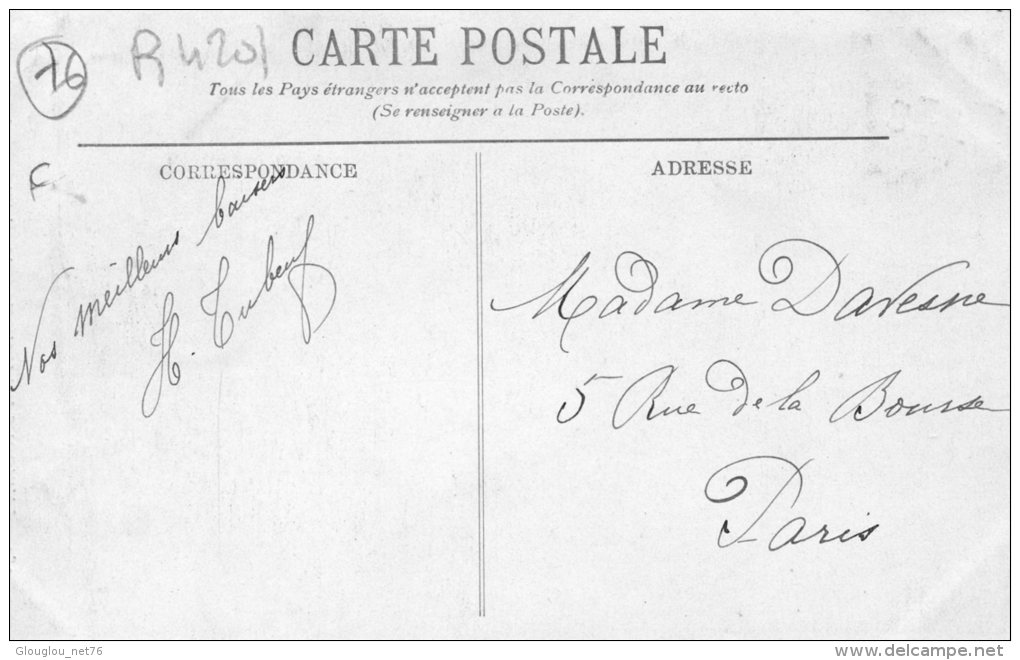 76
R4201
CARTE POSTALE
Tous les Pays étrangers n'acceptent pas la Correspondance au recto
(Se renseigner a la Poste).
F
CORRESPONDANCE
Nos meilleurs baisers
H. Tubeuf
ADRESSE
Madame Davesne
5 Rue de la Bourse
Paris
Glouglou_net76
www.delcampe.net